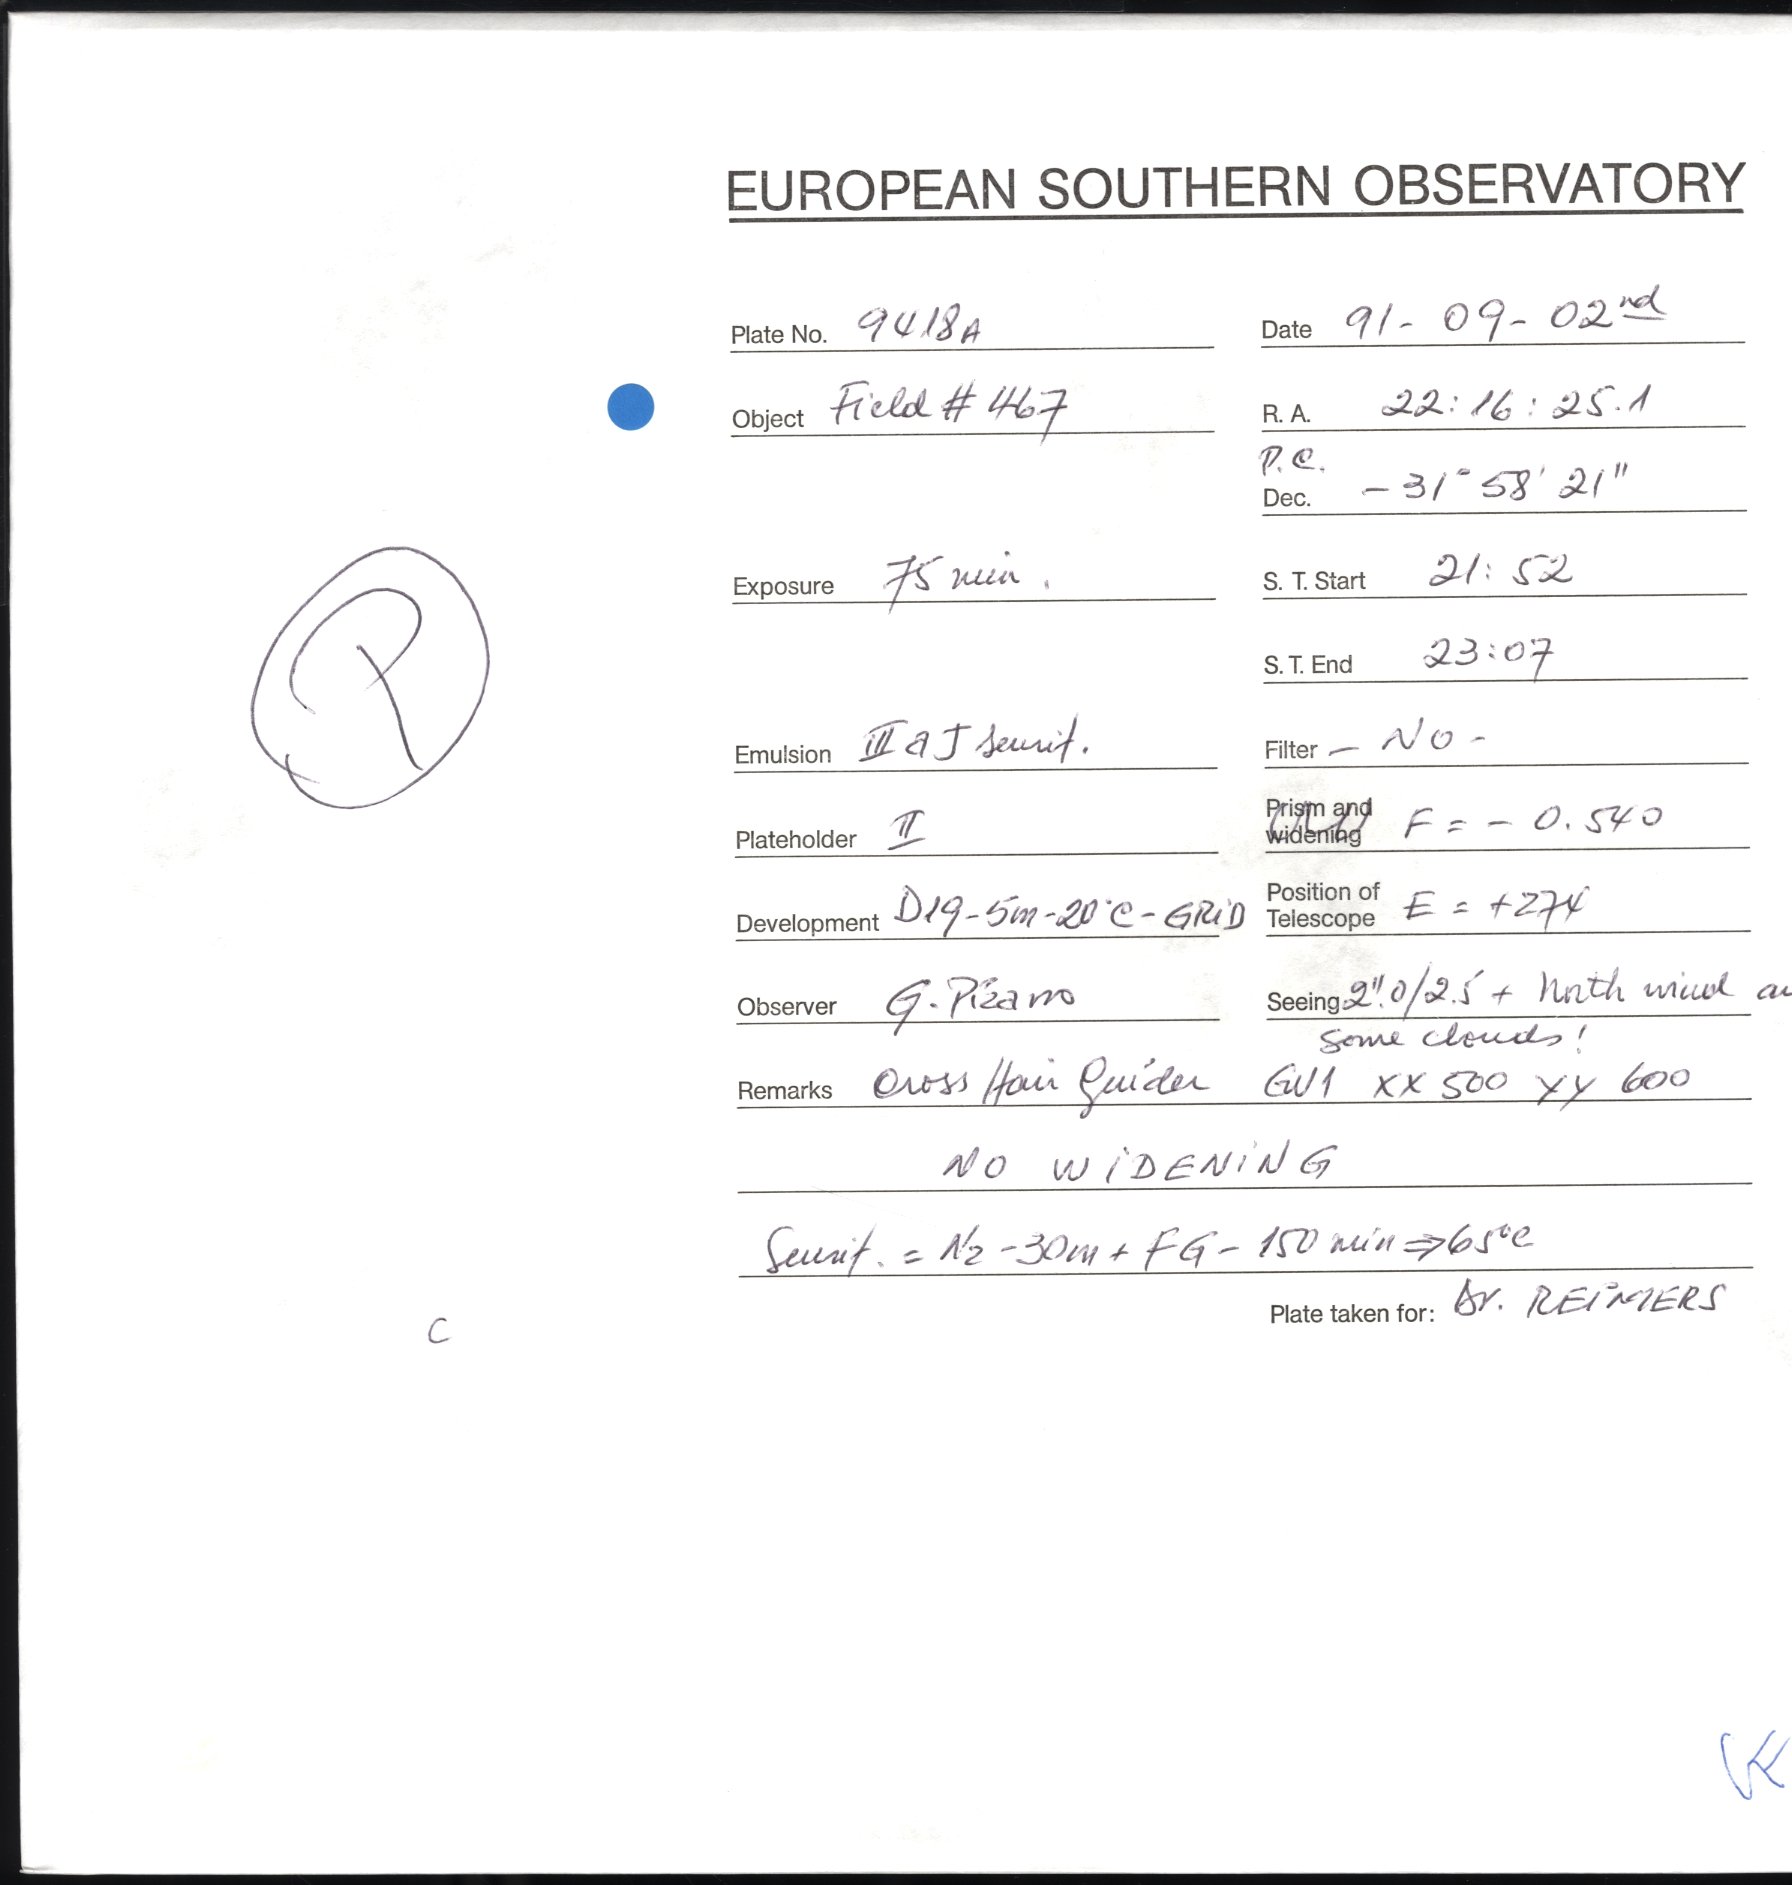 EUROPEAN SOUTHERN OBSERVATORY
Plate No. 9418A Date 91-09-02nd
Object Field # 467 R. A. 22:16:25.1
P.C.
Dec. -31° 58' 21"
Exposure 75 min. S. T. Start 21:52
S. T. End 23:07
P
Emulsion III a J sensit. Filter - NO -
Plateholder II Prism and widening F = - 0.540
Development D19-5m-20°C-GRiD Position of Telescope E = +274
Observer G. Pizarro Seeing 2".0/2.5 + North wind
some clouds!
Remarks Cross Hair Guider GV1 XX 500 YY 600
NO WiDENiNG
Sensit. = N2 -30m + FG - 150 min ⇒ 65°C
Plate taken for: Dr. REiMERS
C